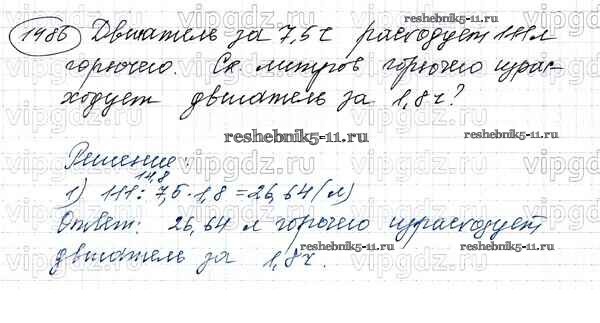 1486 Двигатель за 7,5 ч расходует 111 л
горючего. Ск. литров горючего израс-
ходует двигатель за 1,8 ч?
reshebnik5-11.ru
vipgdz.ru
Решение:
14,8
1) 111 : 7,5 · 1,8 = 26,64 (л)
Ответ: 26,64 л горючего израсходует
двигатель за 1,8 ч.